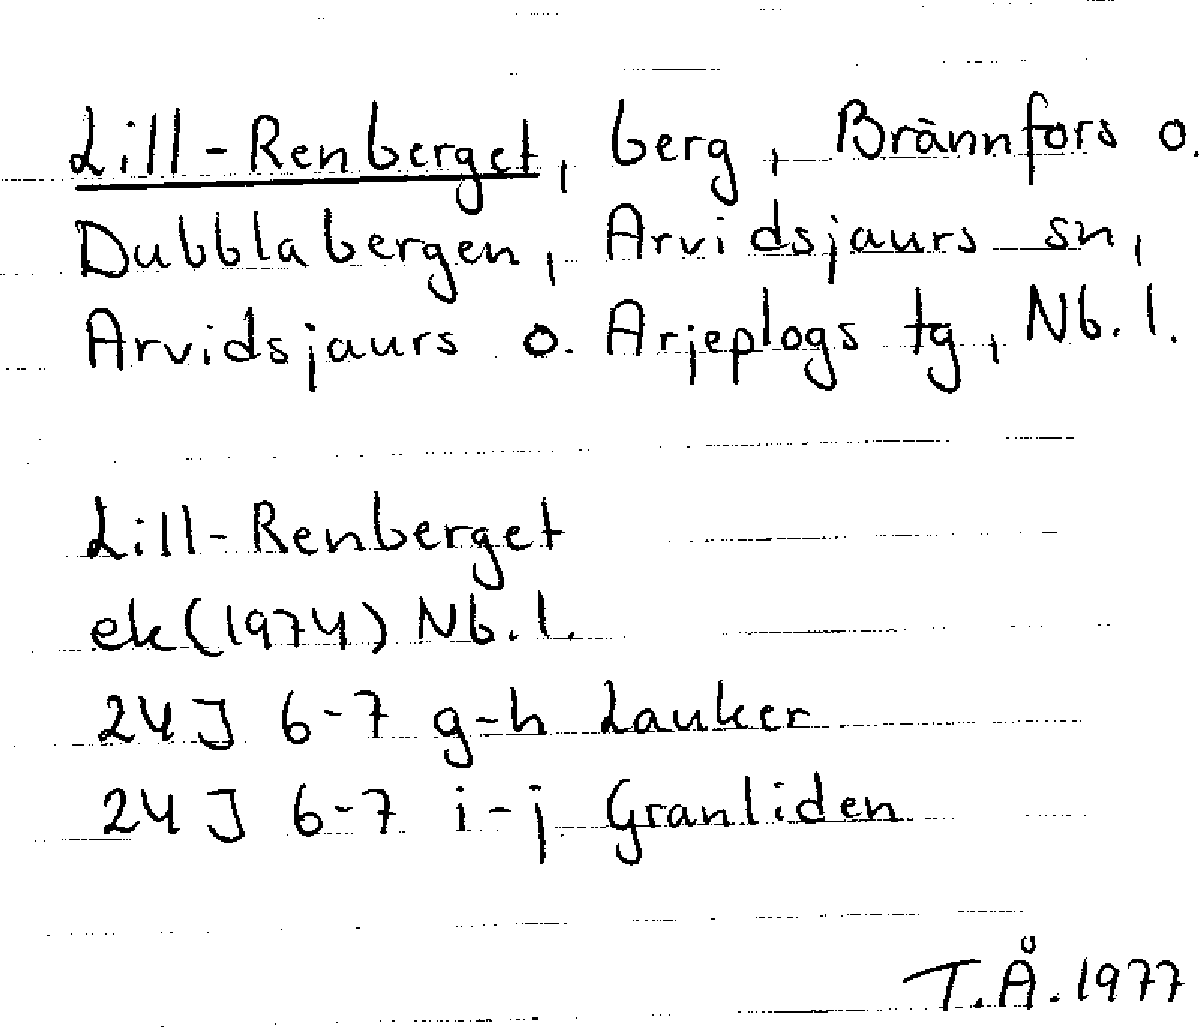 Lill-Renberget, berg, Brännfors o.
Dubblabergen, Arvidsjaurs sn,
Arvidsjaurs o. Arjeplogs tg, Nb. l.
Lill-Renberget
ek (1974) Nb. l.
24 J 6-7 g-h Lauker
24 J 6-7 i-j Granliden
T.Å. 1977